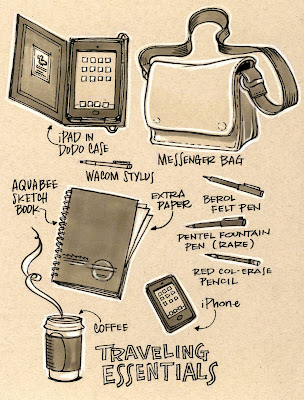 iPAD IN
DODO CASE
WACOM STYLUS
MESSENGER BAG
AQUABEE
SKETCH
BOOK
EXTRA
PAPER
BEROL
FELT PEN
PENTEL FOUNTAIN
PEN (RARE)
RED COL-ERASE
PENCIL
iPHONE
COFFEE
TRAVELING
ESSENTIALS